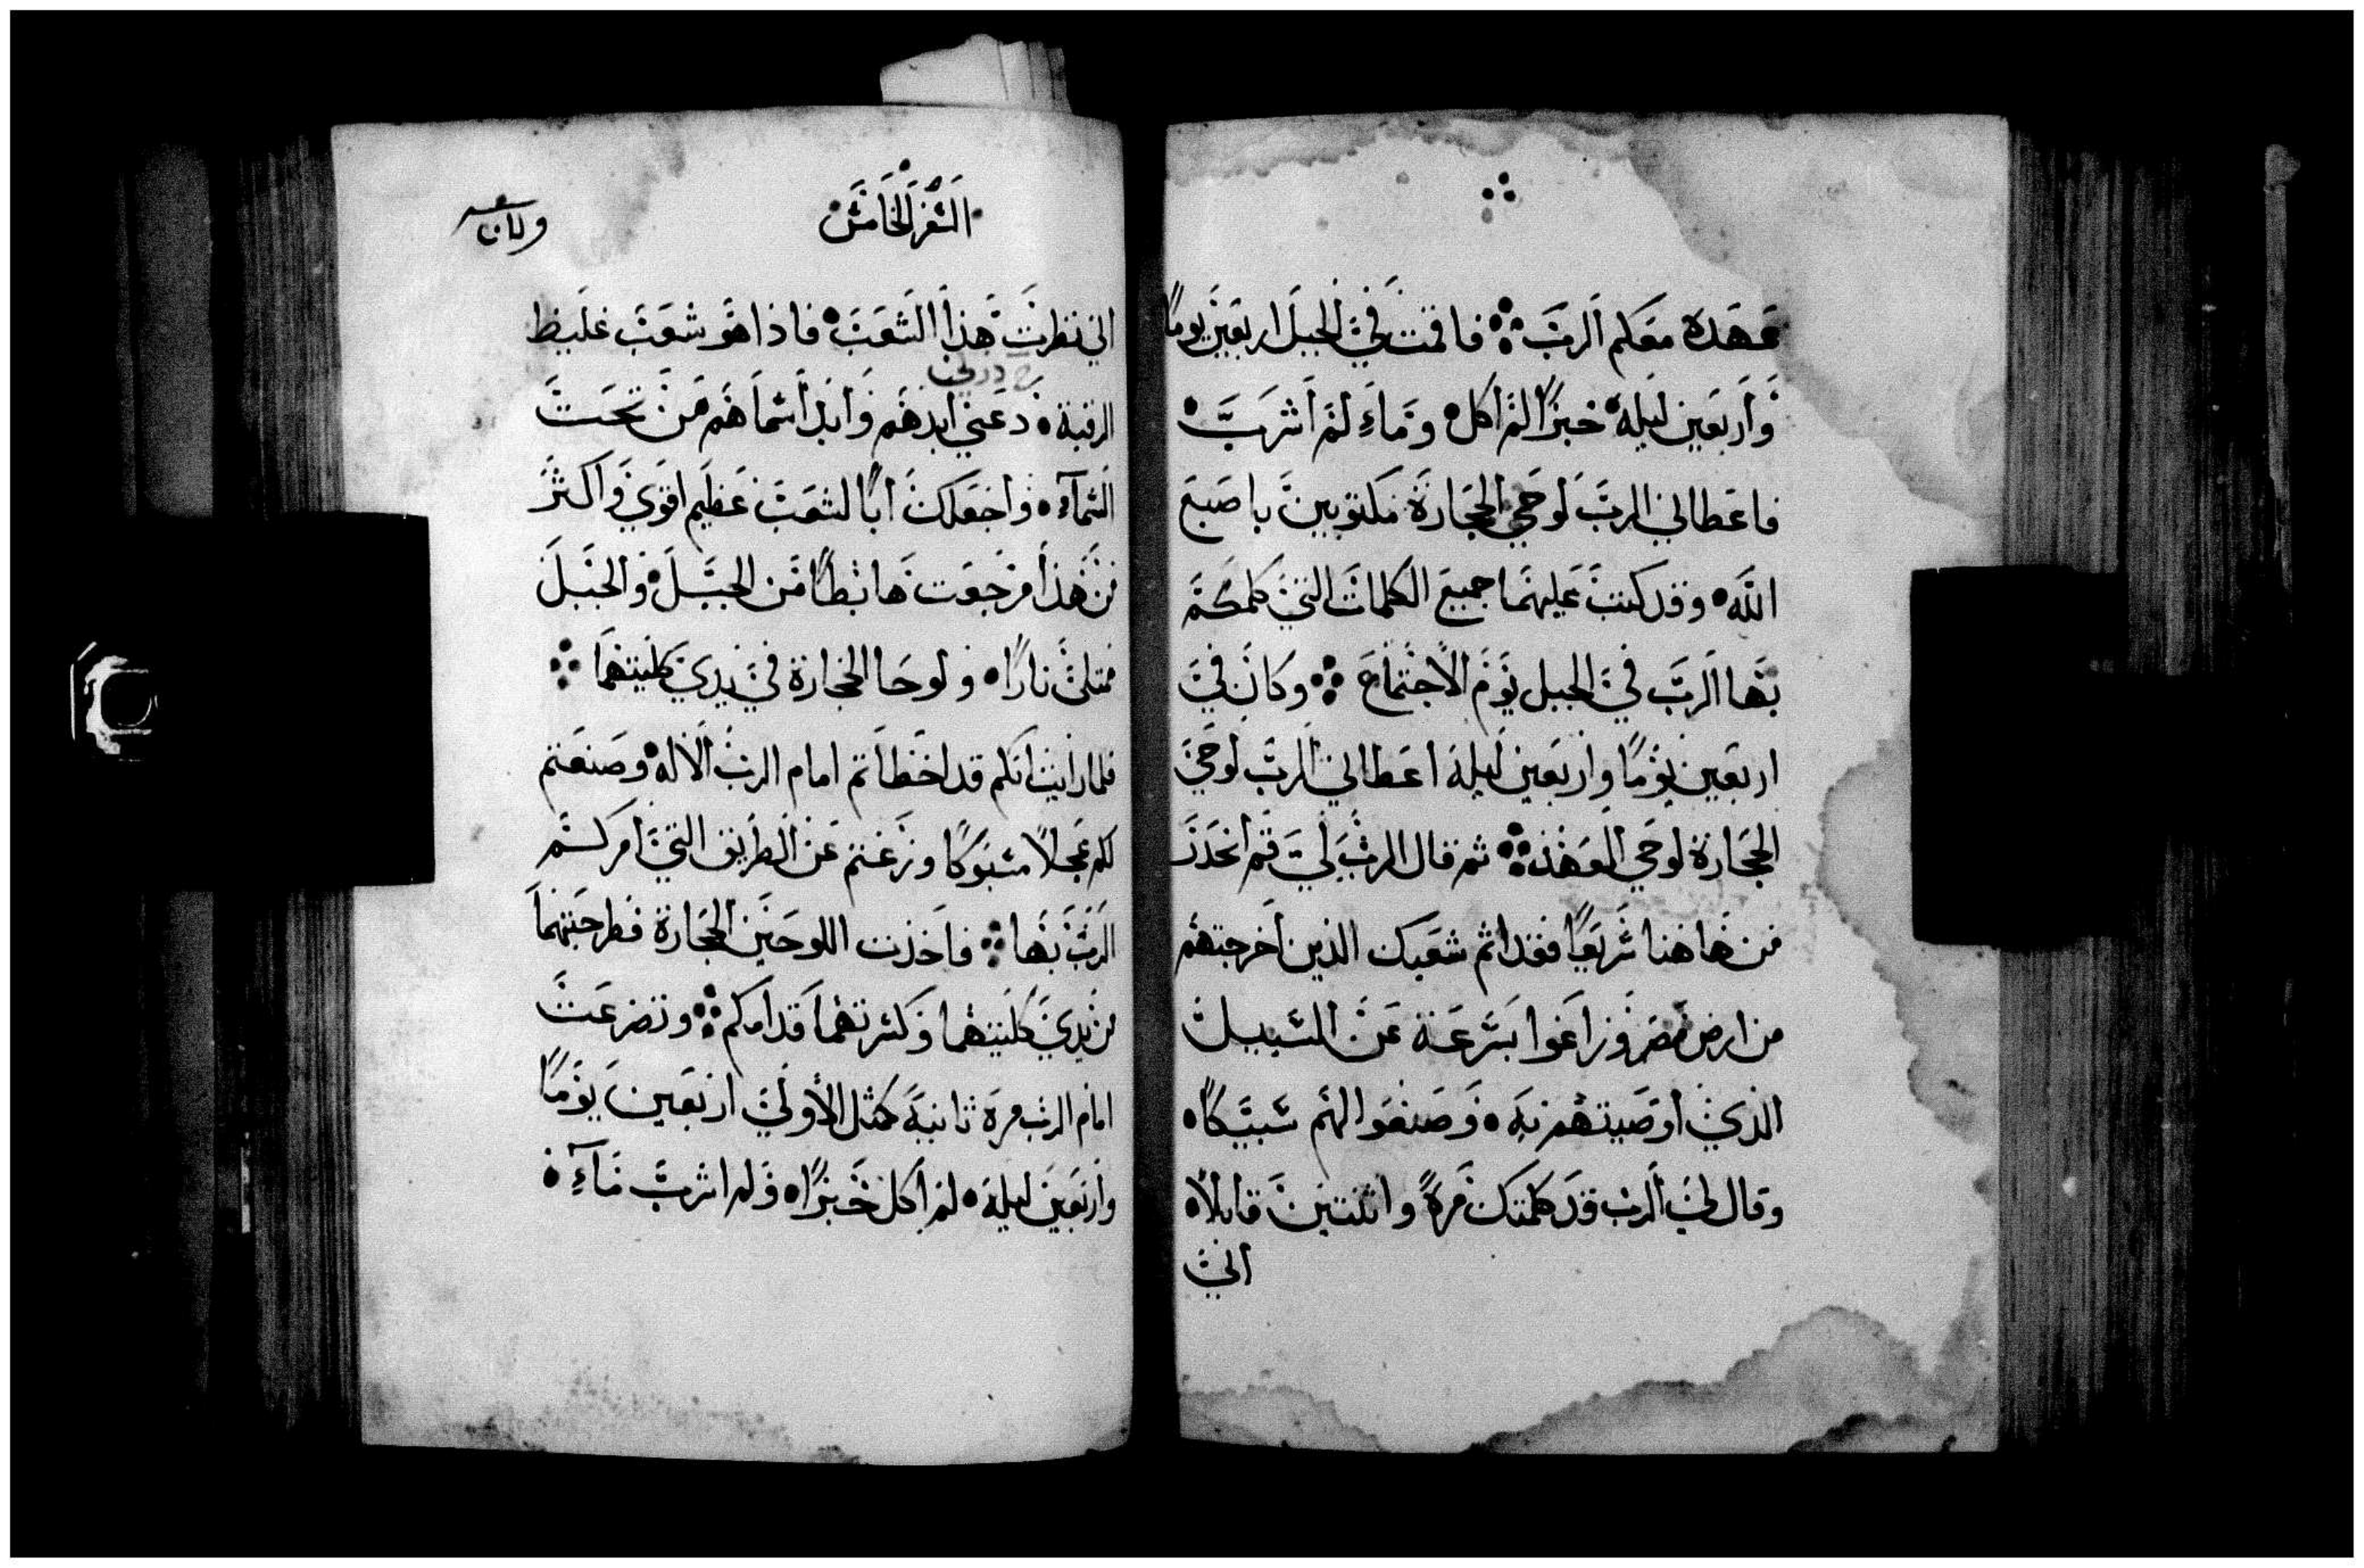 عهده معكم الرب فاقمت في الجبل اربعين يوما
واربعين ليله خبزا لم اكل وماء لم اشرب
فاعطاني الرب لوحي الحجارة مكتوبين باصبع
الله وقد كتب عليهما جميع الكلمات التي كلمكم
بها الرب في الجبل يوم الاجتماع وكان في
اربعين يوما واربعين ليلة اعطاني الرب لوحي
الحجارة لوحي العهد ثم قال الرب لي قم انحدر
من هاهنا سريعا فقد اثم شعبك الذين اخرجتهم
من ارض مصر وزاغوا بسرعة عن السبيل
الذي اوصيتهم به وصنعوا لهم سبيكا
وقال لي الرب قد كلمتك مرة واثنتين قايلا
اني
السفر الخامس
اني نظرت هذا الشعب فاذا هو شعب غليظ
الرقبة دعني ابدهم وابد اسماهم من تحت
السمآء واجعلك ابا لشعب عظيم اقوي واكثر
من هذا فرجعت هابطا من الجبل والجبل
ممتلي نارا ولوحا الحجارة في يدي كليتهما
فلما رايت انكم قد اخطاتم امام الرب الاله وصنعتم
لكم عجلا مسبوكا وزغتم عن الطريق التي امركم
الرب بها فاخذت اللوحين الحجارة فطرحتهما
من يدي كليتهما وكسرتهما قدامكم وتضرعت
امام الرب مرة ثانية كمثل الأولي اربعين يوما
واربعين ليلة لم اكل خبزا ولم اشرب مآء